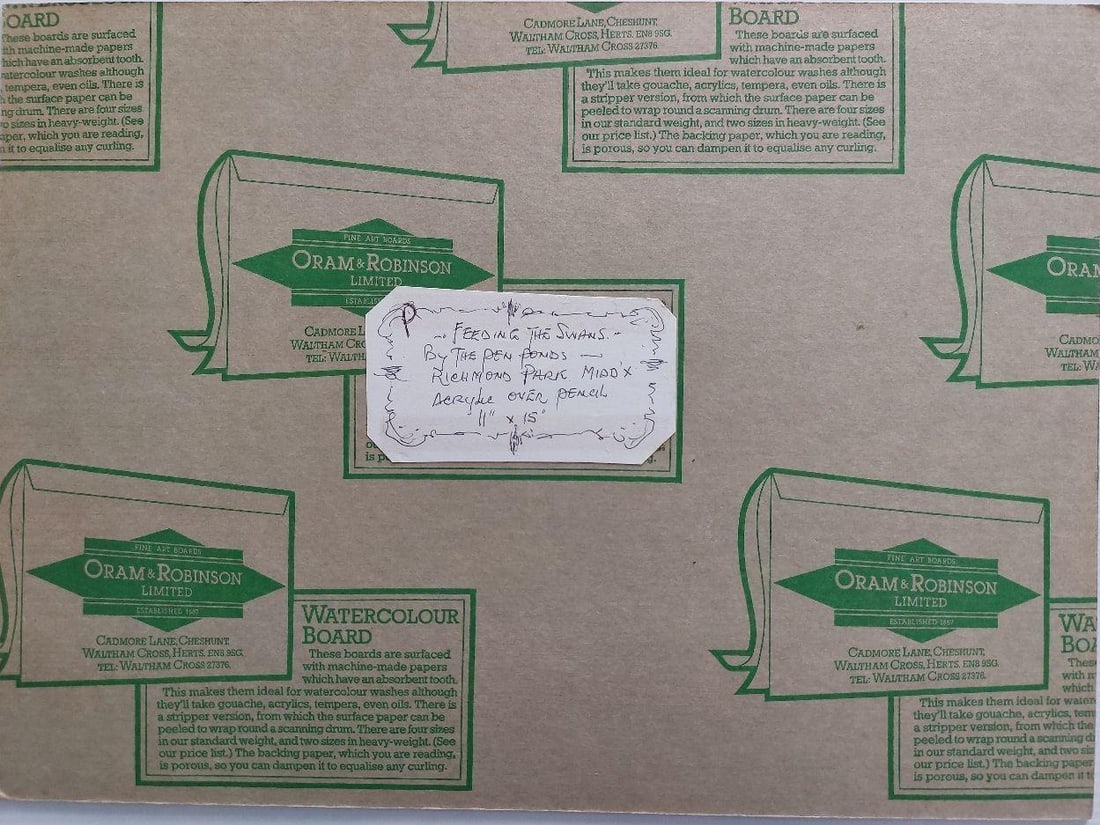 OARD
These boards are surfaced
ith machine-made papers
hich have an absorbent tooth.
atercolour washes although
, tempera, even oils. There is
h the surface paper can be
ng drum. There are four sizes
wo sizes in heavy-weight. (See
aper, which you are reading,
n it to equalise any curling.
CADMORE LANE, CHESHUNT,
WALTHAM CROSS, HERTS. EN8 9SG.
TEL: WALTHAM CROSS 27376.
BOARD
These boards are surfaced
with machine-made papers
which have an absorbent tooth.
This makes them ideal for watercolour washes although
they'll take gouache, acrylics, tempera, even oils. There is
a stripper version, from which the surface paper can be
peeled to wrap round a scanning drum. There are four sizes
in our standard weight, and two sizes in heavy-weight. (See
our price list.) The backing paper, which you are reading,
is porous, so you can dampen it to equalise any curling.
FINE ART BOARDS
ORAM & ROBINSON
LIMITED
ESTABLIS
CADMORE L
WALTHAM CRO
TEL: WALTH
ou
is p
g.
P
FEEDING THE SWANS.
By THE PEN PONDS —
RICHMOND PARK MIDD'X
ACRYLIC OVER PENCIL
11" x 15"
ORAM
CADMOR
WALTHAM
TEL: W
FINE ART BOARDS
ORAM & ROBINSON
LIMITED
ESTABLISHED 1887
CADMORE LANE, CHESHUNT,
WALTHAM CROSS, HERTS. EN8 9SG.
TEL: WALTHAM CROSS 27376.
WATERCOLOUR
BOARD
These boards are surfaced
with machine-made papers
which have an absorbent tooth.
This makes them ideal for watercolour washes although
they'll take gouache, acrylics, tempera, even oils. There is
a stripper version, from which the surface paper can be
peeled to wrap round a scanning drum. There are four sizes
in our standard weight, and two sizes in heavy-weight. (See
our price list.) The backing paper, which you are reading,
is porous, so you can dampen it to equalise any curling.
FINE ART BOARDS
ORAM & ROBINSON
LIMITED
ESTABLISHED 1887
CADMORE LANE, CHESHUNT,
WALTHAM CROSS, HERTS. EN8 9SG.
TEL: WALTHAM CROSS 27376.
WA
BOA
These
with m
which
This makes them ideal for water
they'll take gouache, acrylics, tem
a stripper version, from which the
peeled to wrap round a scanning d
in our standard weight, and two siz
our price list.) The backing paper
is porous, so you can dampen it t